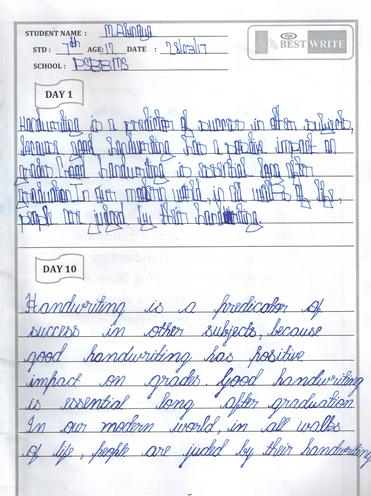 STUDENT NAME : M.Ananya
STD : 7th AGE: 12 DATE : 28/03/17
SCHOOL : PSBB MS
BEST WRITE
DAY 1
Handwriting is a predictor of success in other subjects,
because good handwriting has a positive impact on
grades. Good handwriting is essential long after
graduation. In our modern world, in all walks of life,
people are judged by their handwriting.
DAY 10
Handwriting is a predicator of
success in other subjects, because
good handwriting has positive
impact on grades. Good handwriting
is essential long after graduation
In our modern world, in all walks
of life, people are juded by their handwriting